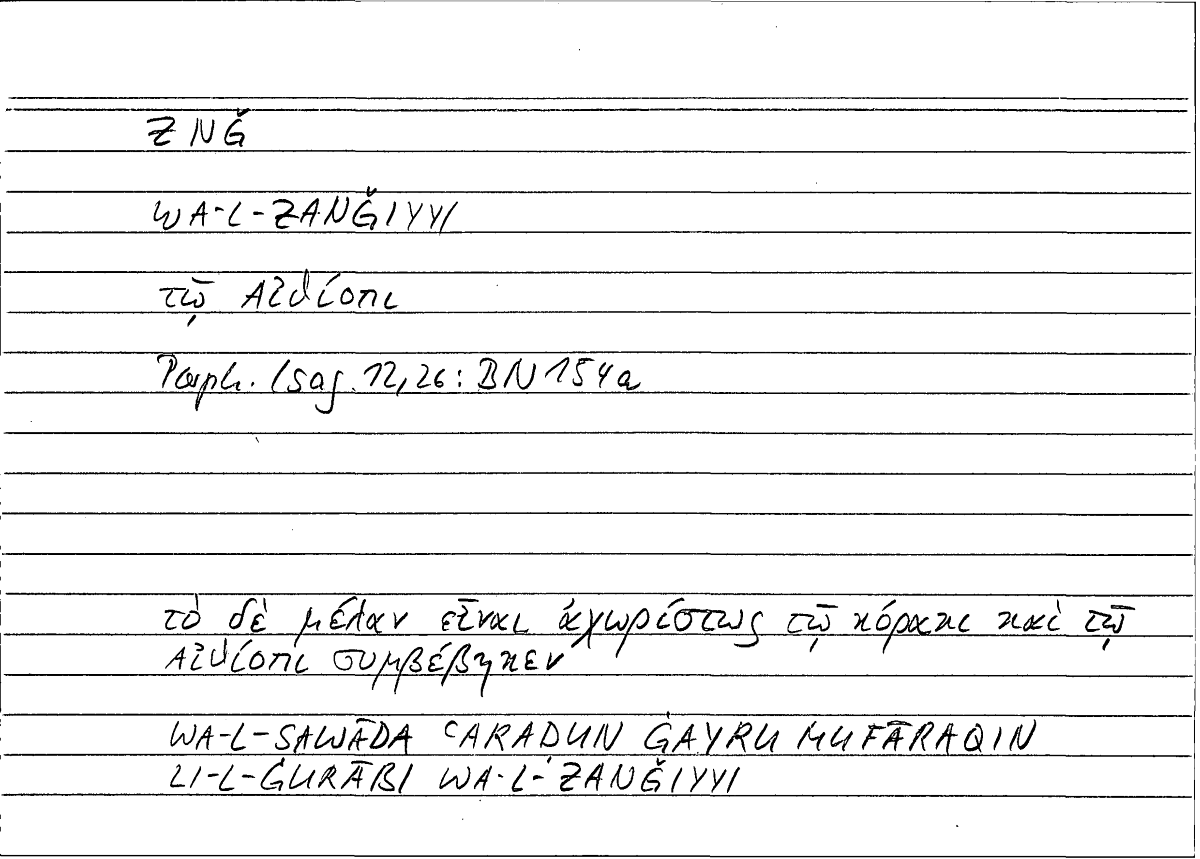 ZNǦ
WA-L-ZANǦIYYI
τῷ Αἰθίοπι
Porph. Isag. 12,26: BN 154a
τὸ δὲ μέλαν εἶναι ἀχωρίστως τῷ κόρακι καὶ τῷ
Αἰθίοπι συμβέβηκεν
WA-L-SAWĀDA ʿARAḌUN ĠAYRU MUFĀRAQIN
LI-L-ĠURĀBI WA-L-ZANǦIYYI